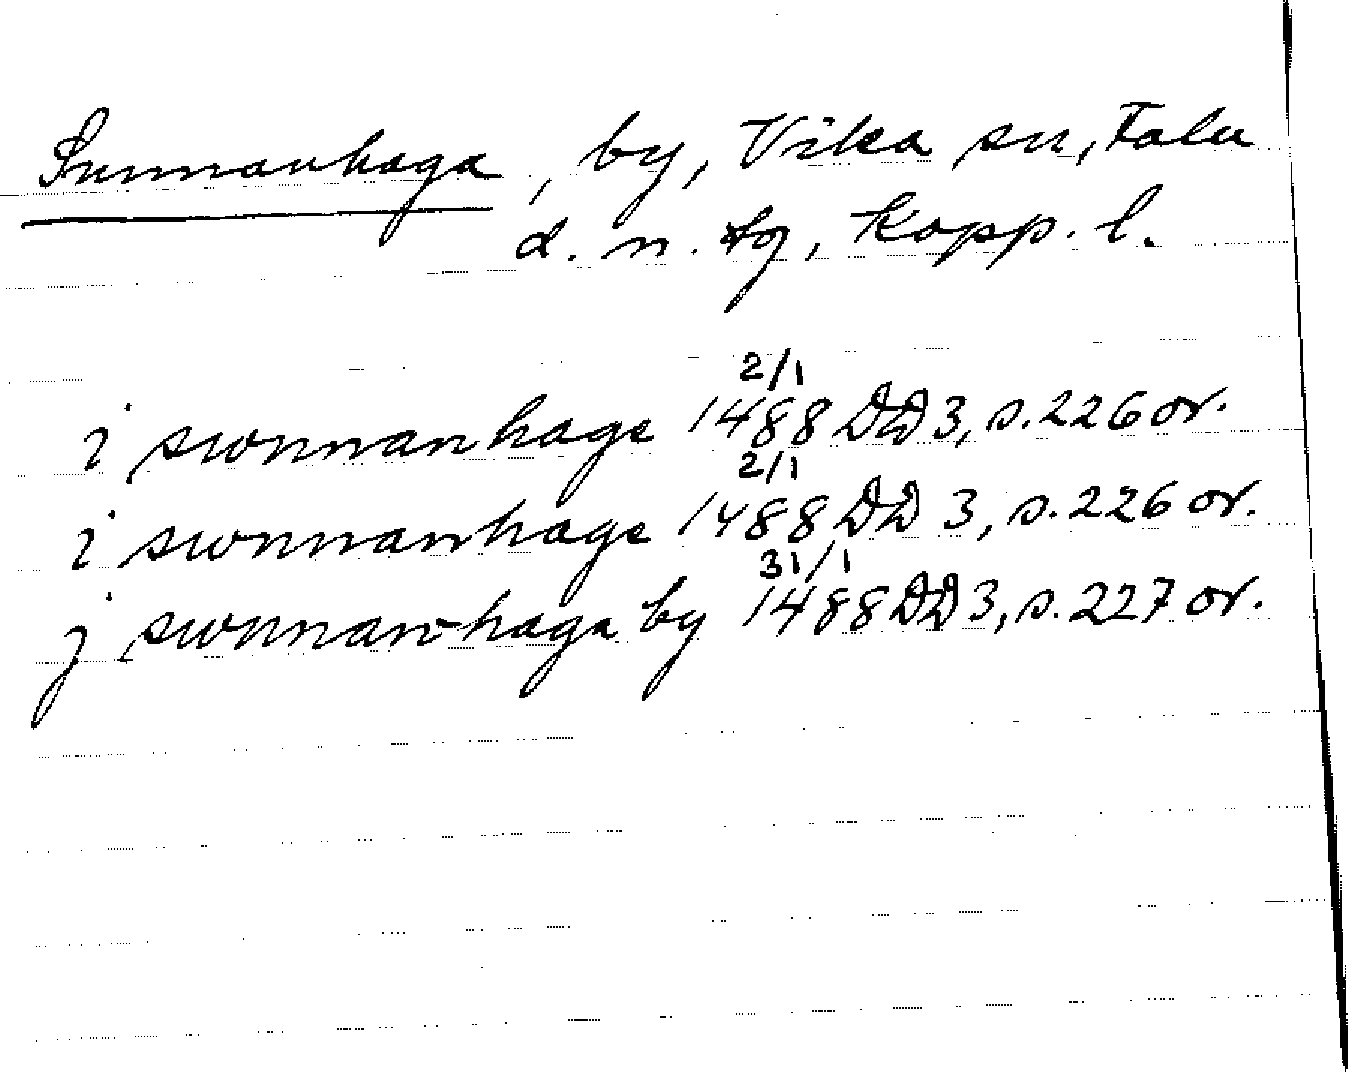 Sunnanhaga, by, Vika sn, Falu
d. n. tg, Kopp. l.
i swnnanhage 2/1 1488 DD 3, s. 226 or.
i swnnanhage 2/1 1488 DD 3, s. 226 or.
j swnnanhaga by 31/1 1488 DD 3, s. 227 or.